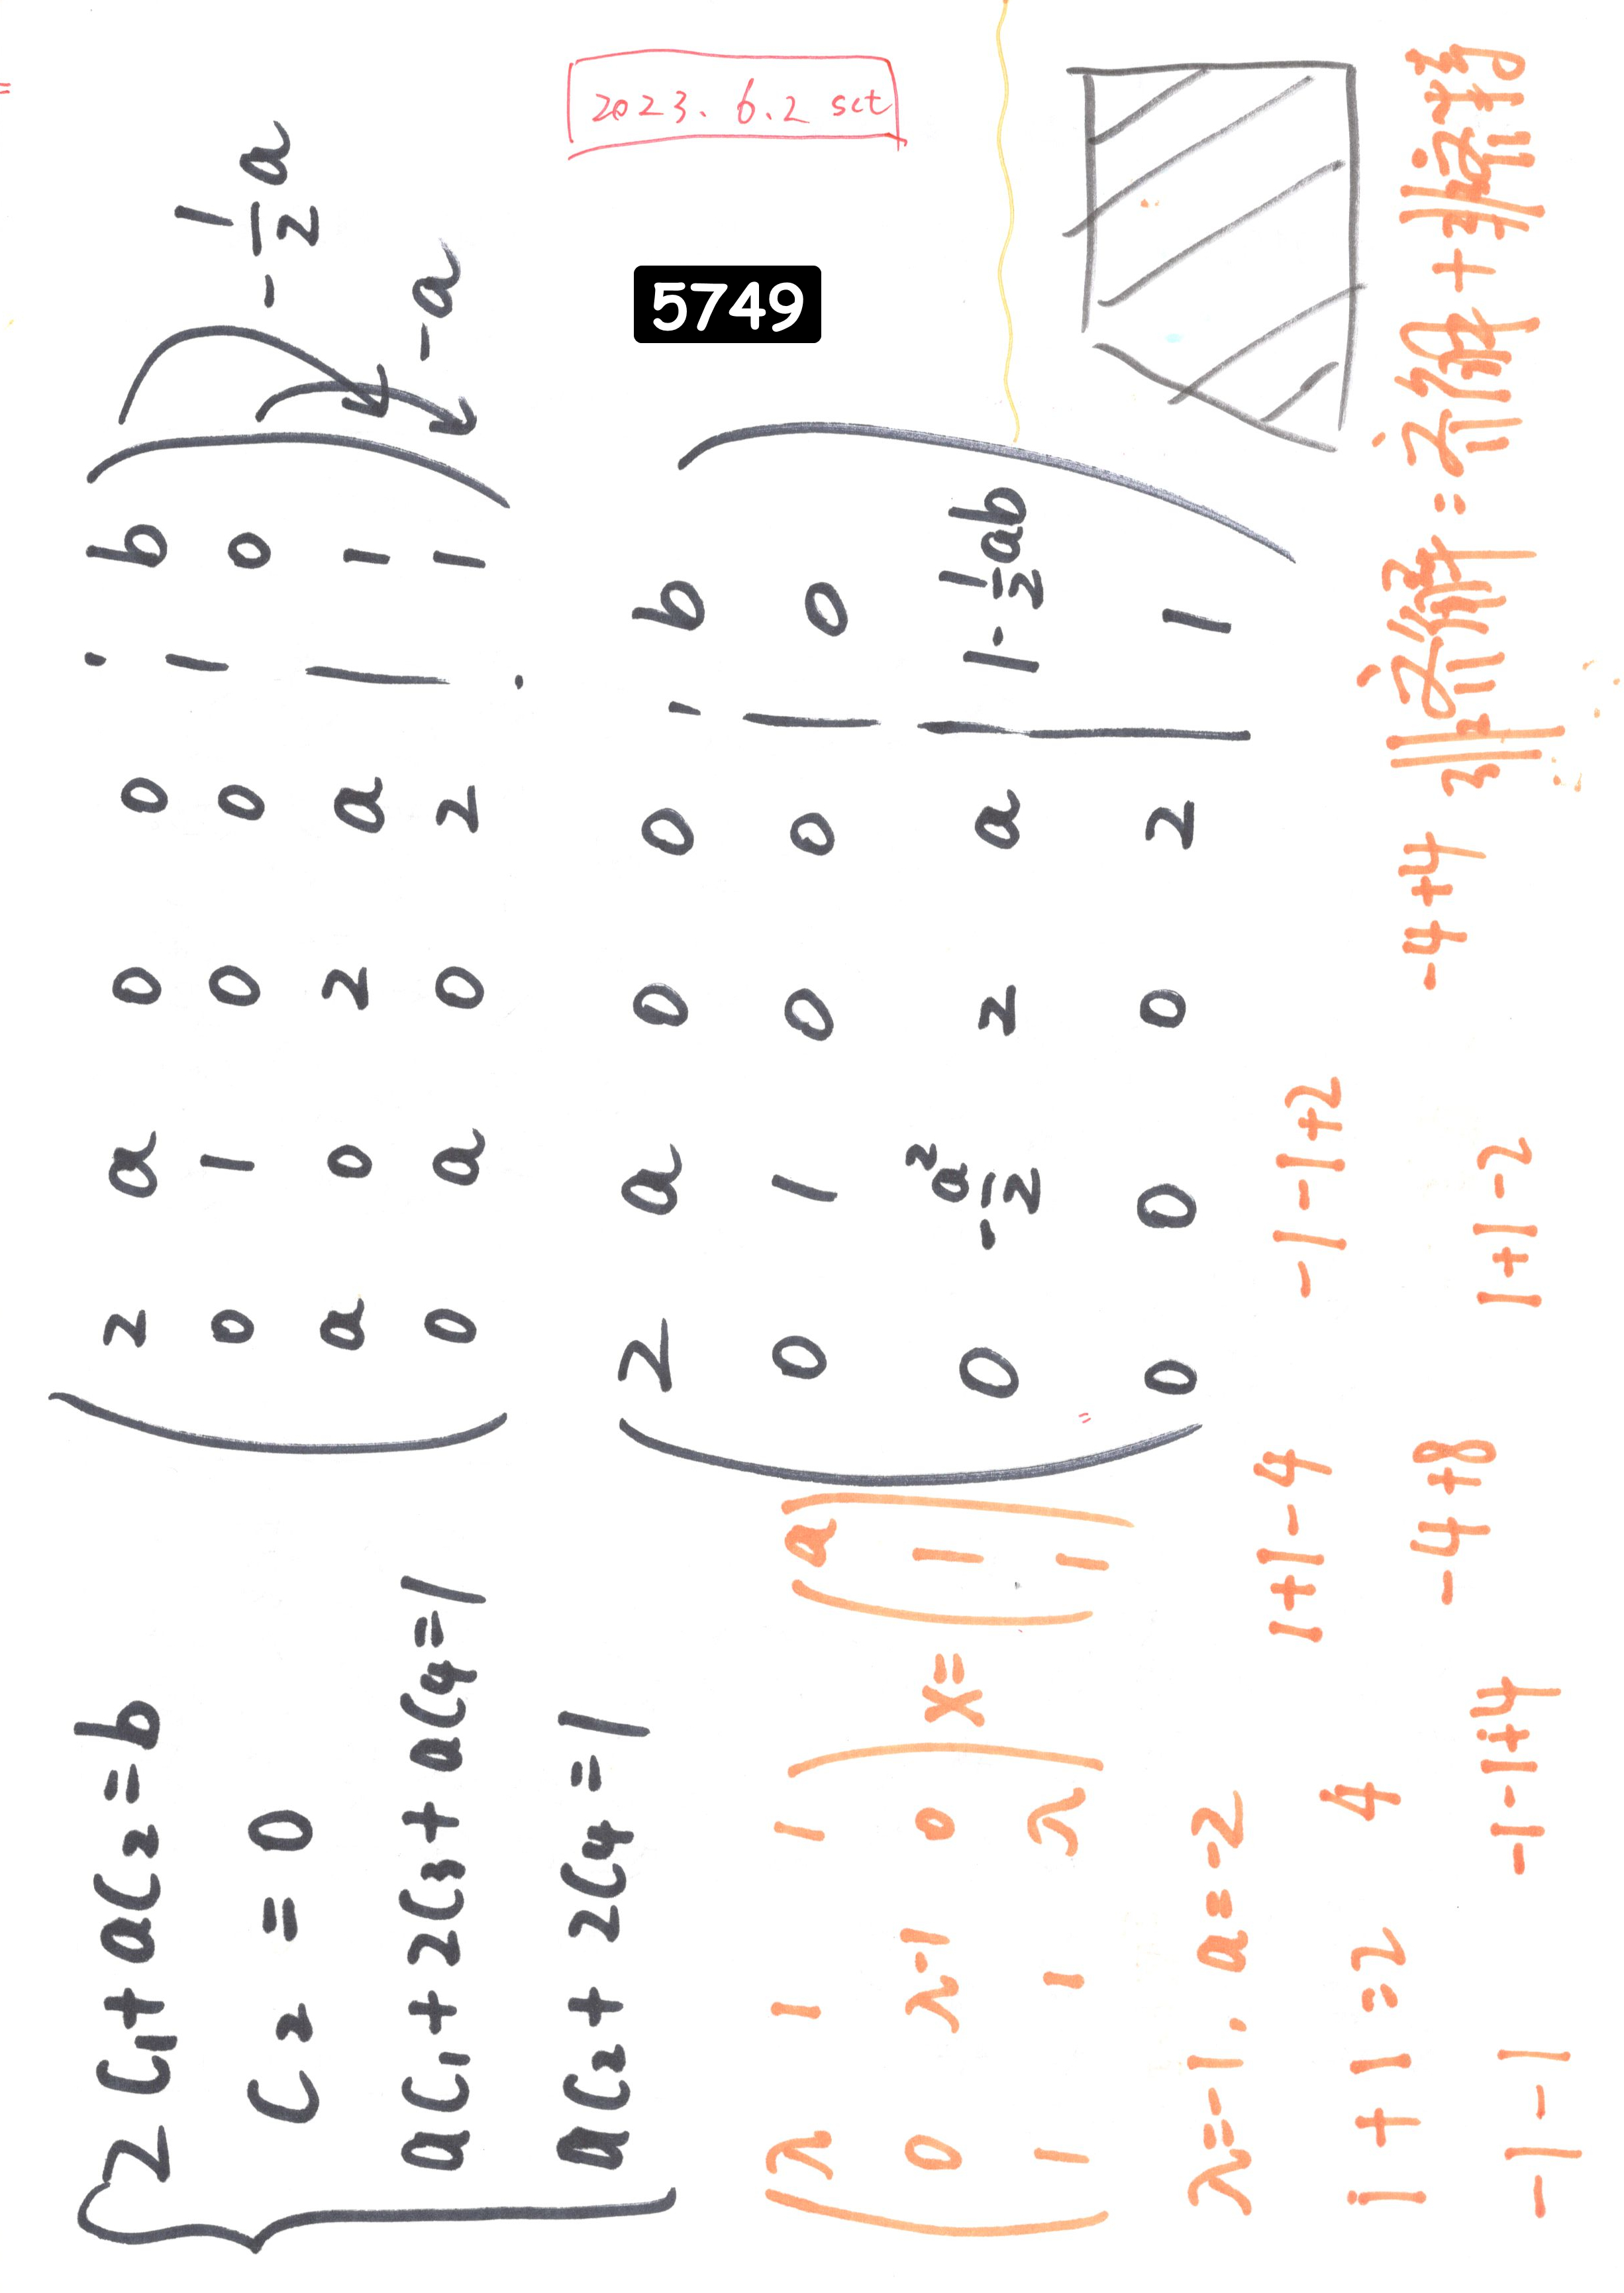 2023. 6.2 sct
5749
2C₁+aC₂=b
C₂=0
aC₁+2C₃+aC₄=1
aC₂+2C₄=1
2 a 0 0 b
0 1 0 0 0
a 0 2 a 1
0 a 0 2 1
-1/2 a
-a
2 a 0 0 b
0 1 0 0 0
0 -a²/2 2 a 1-1/2ab
0 0 0 2 1
λ 1 1
0 λ-1 0
1 1 λ
x=
a
1
1
λ=-1, a=-2
1+1-4
-1-1+2
1+1=2
4
-4+8
-4+4
非齐解=齐通+非齐特
-1-1
-1-1+4
1+1-2